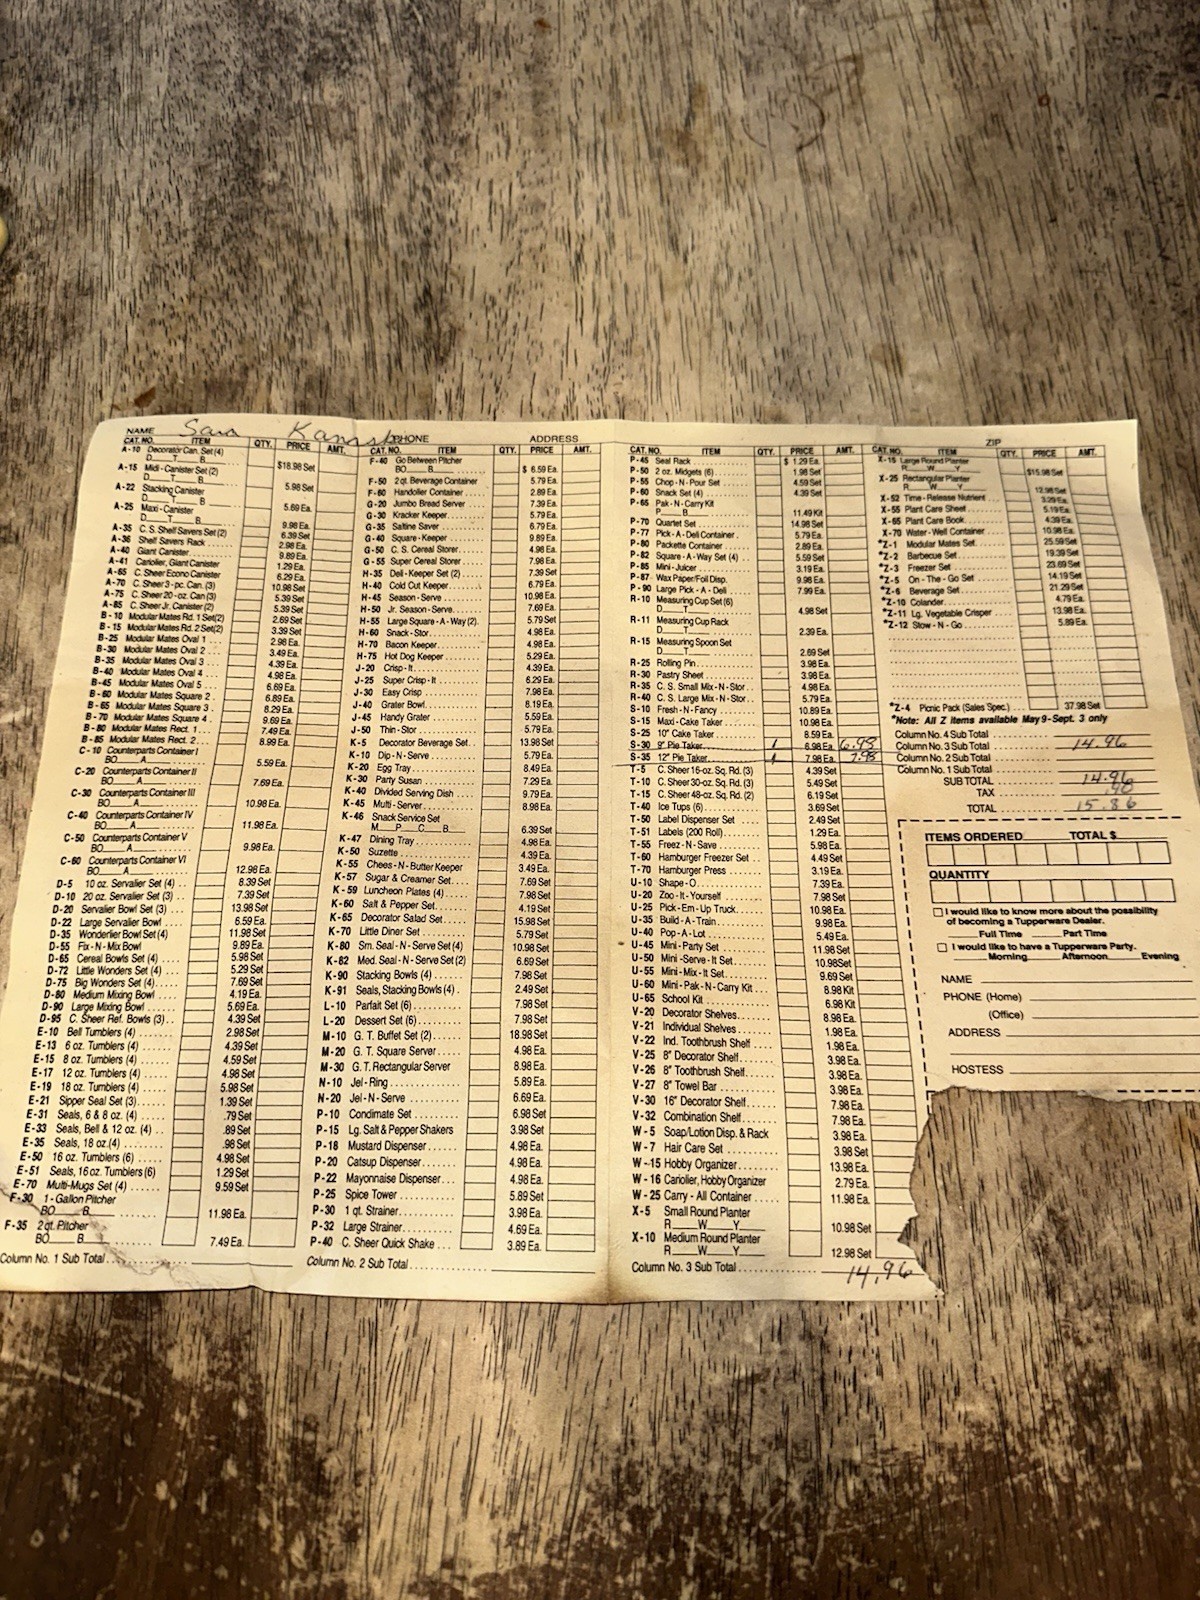 NAME Sara PHONE ADDRESS ZIP
CAT. NO. ITEM QTY. PRICE AMT.
A-10 Decorator Can. Set (4)
D____T____B____ $18.98 Set
A-15 Midi-Canister Set (2)
D____T____B____ 5.98 Set
A-22 Stacking Canister
D____T____B____ 5.89 Ea.
A-25 Maxi-Canister
D____T____B____ 9.98 Ea.
A-35 C. S. Shelf Savers Set (2) 6.39 Set
A-36 Shelf Savers Rack 2.98 Ea.
A-40 Giant Canister 9.89 Ea.
A-41 Cariolier, Giant Canister 1.29 Ea.
A-65 C. Sheer Econo Canister 6.29 Ea.
A-70 C. Sheer 3-pc. Can. (3) 10.98 Set
A-75 C. Sheer 20-oz. Can (3) 5.39 Set
A-85 C. Sheer Jr. Canister (2) 5.39 Set
B-10 Modular Mates Rd. 1 Set(2) 2.69 Set
B-15 Modular Mates Rd. 2 Set(2) 3.39 Set
B-25 Modular Mates Oval 1 2.98 Ea.
B-30 Modular Mates Oval 2 3.49 Ea.
B-35 Modular Mates Oval 3 4.39 Ea.
B-40 Modular Mates Oval 4 4.98 Ea.
B-45 Modular Mates Oval 5 6.69 Ea.
B-60 Modular Mates Square 2 6.89 Ea.
B-65 Modular Mates Square 3 8.29 Ea.
B-70 Modular Mates Square 4 9.69 Ea.
B-80 Modular Mates Rect. 1 7.49 Ea.
B-85 Modular Mates Rect. 2 8.99 Ea.
C-10 Counterparts Container I
BO____A____ 5.59 Ea.
C-20 Counterparts Container II
BO____A____ 7.69 Ea.
C-30 Counterparts Container III
BO____A____ 10.98 Ea.
C-40 Counterparts Container IV
BO____A____ 11.98 Ea.
C-50 Counterparts Container V
BO____A____ 9.98 Ea.
C-60 Counterparts Container VI
BO____A____ 12.98 Ea.
D-5 10 oz. Servalier Set (4) 8.39 Set
D-10 20 oz. Servalier Set (3) 7.39 Set
D-20 Servalier Bowl Set (3) 13.98 Set
D-22 Large Servalier Bowl 6.59 Ea.
D-35 Wonderlier Bowl Set (4) 11.98 Set
D-55 Fix-N-Mix Bowl 9.89 Ea.
D-65 Cereal Bowls Set (4) 5.98 Set
D-72 Little Wonders Set (4) 5.29 Set
D-75 Big Wonders Set (4) 7.69 Set
D-80 Medium Mixing Bowl 4.19 Ea.
D-90 Large Mixing Bowl 5.69 Ea.
D-95 C. Sheer Ref. Bowls (3) 4.39 Set
E-10 Bell Tumblers (4) 2.98 Set
E-13 6 oz. Tumblers (4) 4.39 Set
E-15 8 oz. Tumblers (4) 4.59 Set
E-17 12 oz. Tumblers (4) 4.98 Set
E-19 18 oz. Tumblers (4) 5.98 Set
E-21 Sipper Seal Set (3) 1.39 Set
E-31 Seals, 6 & 8 oz. (4) .79 Set
E-33 Seals, Bell & 12 oz. (4) .89 Set
E-35 Seals, 18 oz. (4) .98 Set
E-50 16 oz. Tumblers (6) 4.98 Set
E-51 Seals, 16 oz. Tumblers (6) 1.29 Set
E-70 Multi-Mugs Set (4) 9.59 Set
F-30 1-Gallon Pitcher
BO____B____ 11.98 Ea.
F-35 2 qt. Pitcher
BO____B____ 7.49 Ea.
Column No. 1 Sub Total
CAT. NO. ITEM QTY. PRICE AMT.
F-40 Go Between Pitcher
BO____B____ $ 6.59 Ea.
F-50 2 qt. Beverage Container 5.79 Ea.
F-60 Handolier Container 2.89 Ea.
G-20 Jumbo Bread Server 7.39 Ea.
G-30 Kracker Keeper 5.79 Ea.
G-35 Saltine Saver 6.79 Ea.
G-40 Square-Keeper 9.89 Ea.
G-50 C. S. Cereal Storer 4.98 Ea.
G-55 Super Cereal Storer 7.98 Ea.
H-35 Deli-Keeper Set (2) 7.39 Set
H-40 Cold Cut Keeper 6.79 Ea.
H-45 Season-Serve 10.98 Ea.
H-50 Jr. Season-Serve 7.69 Ea.
H-55 Large Square-A-Way (2) 5.79 Set
H-60 Snack-Stor 4.98 Ea.
H-70 Bacon Keeper 4.98 Ea.
H-75 Hot Dog Keeper 5.29 Ea.
J-20 Crisp-It 4.39 Ea.
J-25 Super Crisp-It 6.29 Ea.
J-30 Easy Crisp 7.98 Ea.
J-40 Grater Bowl 8.19 Ea.
J-45 Handy Grater 5.59 Ea.
J-50 Thin-Stor 5.79 Ea.
K-5 Decorator Beverage Set 13.98 Set
K-10 Dip-N-Serve 5.79 Ea.
K-20 Egg Tray 8.49 Ea.
K-30 Party Susan 7.29 Ea.
K-40 Divided Serving Dish 9.79 Ea.
K-45 Multi-Server 8.98 Ea.
K-46 Snack Service Set
M____P____C____B____ 6.39 Set
K-47 Dining Tray 4.98 Ea.
K-50 Suzette 4.39 Ea.
K-55 Chees-N-Butter Keeper 3.49 Ea.
K-57 Sugar & Creamer Set 7.69 Set
K-59 Luncheon Plates (4) 7.98 Set
K-60 Salt & Pepper Set 4.19 Set
K-65 Decorator Salad Set 15.98 Set
K-70 Little Diner Set 5.79 Set
K-80 Sm. Seal-N-Serve Set (4) 10.98 Set
K-82 Med. Seal-N-Serve Set (2) 6.69 Set
K-90 Stacking Bowls (4) 7.98 Set
K-91 Seals, Stacking Bowls (4) 2.49 Set
L-10 Parfait Set (6) 7.98 Set
L-20 Dessert Set (6) 7.98 Set
M-10 G. T. Buffet Set (2) 18.98 Set
M-20 G. T. Square Server 4.98 Ea.
M-30 G. T. Rectangular Server 8.98 Ea.
N-10 Jel-Ring 5.89 Ea.
N-20 Jel-N-Serve 6.69 Ea.
P-10 Condimate Set 6.98 Set
P-15 Lg. Salt & Pepper Shakers 3.98 Set
P-18 Mustard Dispenser 4.98 Ea.
P-20 Catsup Dispenser 4.98 Ea.
P-22 Mayonnaise Dispenser 4.98 Ea.
P-25 Spice Tower 5.89 Set
P-30 1 qt. Strainer 3.98 Ea.
P-32 Large Strainer 4.69 Ea.
P-40 C. Sheer Quick Shake 3.89 Ea.
Column No. 2 Sub Total
CAT. NO. ITEM QTY. PRICE AMT.
P-45 Seal Rack $ 1.29 Ea.
P-50 2 oz. Midgets (6) 1.98 Set
P-55 Chop-N-Pour Set 4.59 Set
P-60 Snack Set (4) 4.39 Set
P-65 Pak-N-Carry Kit
P____B____ 11.49 Kit
P-70 Quartet Set 14.98 Set
P-77 Pick-A-Deli Container 5.79 Ea.
P-80 Packette Container 2.89 Ea.
P-82 Square-A-Way Set (4) 5.59 Set
P-85 Mini-Juicer 3.19 Ea.
P-87 Wax Paper/Foil Disp. 9.98 Ea.
P-90 Large Pick-A-Deli 7.99 Ea.
R-10 Measuring Cup Set (6)
D____T____ 4.98 Set
R-11 Measuring Cup Rack
D____T____ 2.39 Ea.
R-15 Measuring Spoon Set
D____T____ 2.69 Set
R-25 Rolling Pin 3.98 Ea.
R-30 Pastry Sheet 3.98 Ea.
R-35 C. S. Small Mix-N-Stor 4.98 Ea.
R-40 C. S. Large Mix-N-Stor 5.79 Ea.
S-10 Fresh-N-Fancy 10.89 Ea.
S-15 Maxi-Cake Taker 10.98 Ea.
S-25 10" Cake Taker 8.59 Ea.
S-30 9" Pie Taker 1 6.98 Ea. 6.98
S-35 12" Pie Taker 1 7.98 Ea. 7.98
T-5 C. Sheer 16-oz. Sq. Rd. (3) 4.39 Set
T-10 C. Sheer 30-oz. Sq. Rd. (3) 5.49 Set
T-15 C. Sheer 48-oz. Sq. Rd. (2) 6.19 Set
T-40 Ice Tups (6) 3.69 Set
T-50 Label Dispenser Set 2.49 Set
T-51 Labels (200 Roll) 1.29 Ea.
T-55 Freez-N-Save 5.98 Ea.
T-60 Hamburger Freezer Set 4.49 Set
T-70 Hamburger Press 3.19 Ea.
U-10 Shape-O 7.39 Ea.
U-20 Zoo-It-Yourself 7.98 Set
U-25 Pick-Em-Up Truck 10.98 Ea.
U-35 Build-A-Train 9.98 Ea.
U-40 Pop-A-Lot 5.49 Ea.
U-45 Mini-Party Set 11.98 Set
U-50 Mini-Serve-It Set 10.98Set
U-55 Mini-Mix-It Set 9.69 Set
U-60 Mini-Pak-N-Carry Kit 8.98 Kit
U-65 School Kit 6.98 Kit
V-20 Decorator Shelves 8.98 Ea.
V-21 Individual Shelves 1.98 Ea.
V-22 Ind. Toothbrush Shelf 1.98 Ea.
V-25 8" Decorator Shelf 3.98 Ea.
V-26 8" Toothbrush Shelf 3.98 Ea.
V-27 8" Towel Bar 3.98 Ea.
V-30 16" Decorator Shelf 7.98 Ea.
V-32 Combination Shelf 7.98 Ea.
W-5 Soap/Lotion Disp. & Rack 3.98 Ea.
W-7 Hair Care Set 3.98 Set
W-15 Hobby Organizer 13.98 Ea.
W-16 Cariolier, Hobby Organizer 2.79 Ea.
W-25 Carry-All Container 11.98 Ea.
X-5 Small Round Planter
R____W____Y____ 10.98 Set
X-10 Medium Round Planter
R____W____Y____ 12.98 Set
Column No. 3 Sub Total 14.96
CAT. NO. ITEM QTY. PRICE AMT.
X-15 Large Round Planter
R____W____Y____ $15.98 Set
X-25 Rectangular Planter
R____W____ 12.98 Set
X-52 Time-Release Nutrient 3.29 Ea.
X-55 Plant Care Sheet 5.19 Ea.
X-65 Plant Care Book 4.39 Ea.
X-70 Water-Well Container 10.98 Ea.
*Z-1 Modular Mates Set 25.59 Set
*Z-2 Barbecue Set 19.39 Set
*Z-3 Freezer Set 23.69 Set
*Z-5 On-The-Go Set 14.19 Set
*Z-6 Beverage Set 21.29 Set
*Z-10 Colander 4.79 Ea.
*Z-11 Lg. Vegetable Crisper 13.98 Ea.
*Z-12 Stow-N-Go 5.89 Ea.
*Z-4 Picnic Pack (Sales Spec.) 37.98 Set
*Note: All Z items available May 9-Sept. 3 only
Column No. 4 Sub Total
Column No. 3 Sub Total 14.96
Column No. 2 Sub Total
Column No. 1 Sub Total
SUB TOTAL 14.96
TAX .90
TOTAL 15.86
ITEMS ORDERED TOTAL $
QUANTITY
I would like to know more about the possibility
of becoming a Tupperware Dealer.
Full Time ____Part Time
I would like to have a Tupperware Party.
____Morning____Afternoon____Evening
NAME
PHONE (Home)
(Office)
ADDRESS
HOSTESS